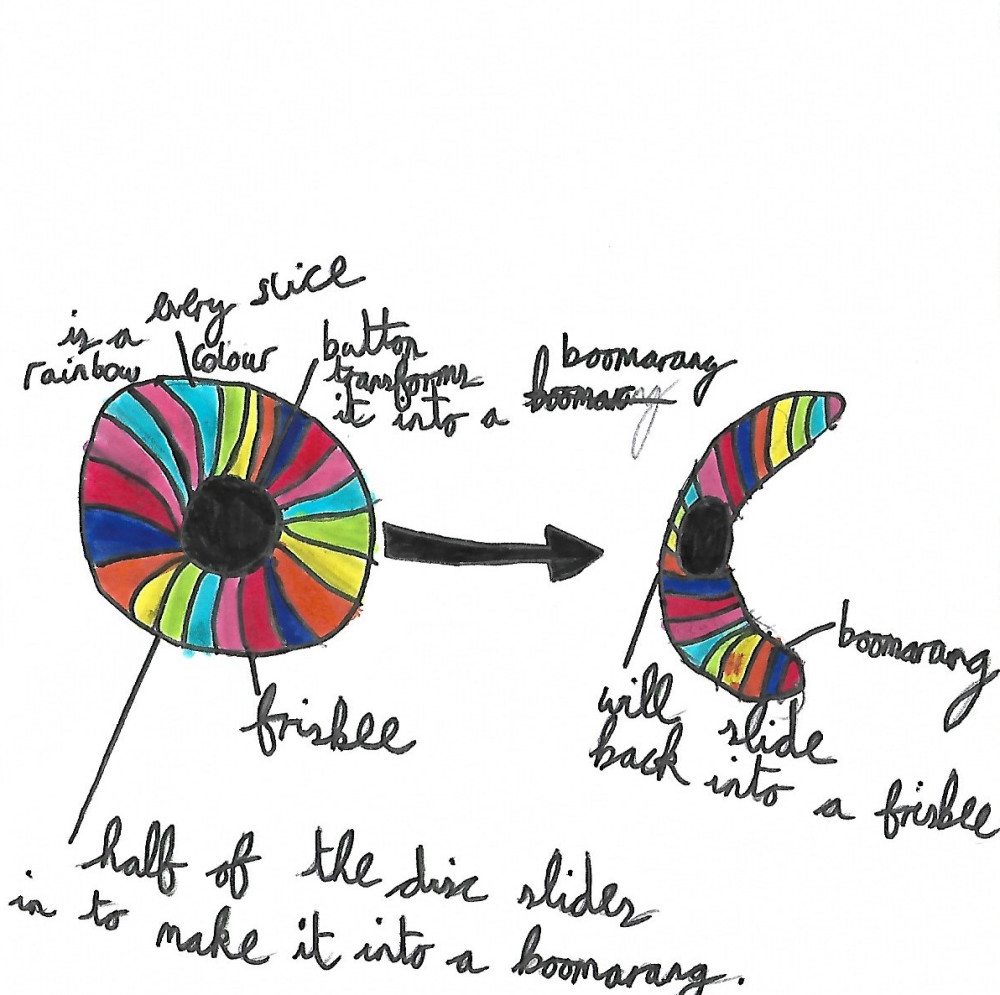 every slice
is a
rainbow colour
button
transforms
it into a boomarang
boomarang
frisbee
boomarang
will slide
back into a frisbee
half of the disc slides
in to make it into a boomarang.